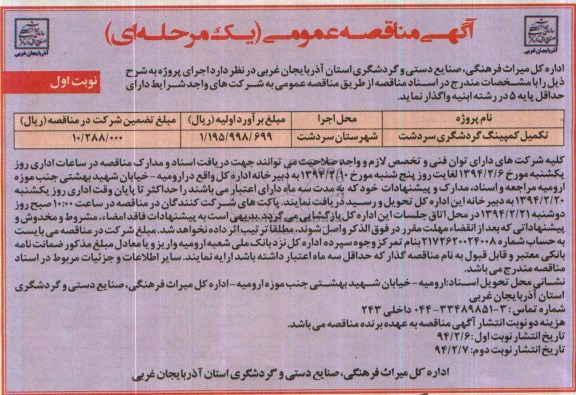 آگهی مناقصه عمومی (یک مرحله‌ای)
آذربایجان غربی
آذربایجان غربی
نوبت اول
اداره کل میراث فرهنگی، صنایع دستی و گردشگری استان آذربایجان غربی در نظر دارد اجرای پروژه به شرح
ذیل را با مشخصات مندرج در اسناد مناقصه از طریق مناقصه عمومی به شرکت های واجد شرایط دارای
حداقل پایه ۵ در رشته ابنیه واگذار نماید.
نام پروژه محل اجرا مبلغ برآورد اولیه (ریال) مبلغ تضمین شرکت در مناقصه (ریال)
تکمیل کمپینگ گردشگری سردشت شهرستان سردشت ۱/۱۹۵/۹۹۸/۶۹۹ ۱۰/۲۸۸/۰۰۰
کلیه شرکت های دارای توان فنی و تخصص لازم و واجد صلاحیت می توانند جهت دریافت اسناد و مدارک مناقصه در ساعات اداری روز
یکشنبه مورخ ۱۳۹۴/۲/۶ لغایت روز پنج شنبه مورخ ۱۳۹۴/۲/۱۰ به دبیرخانه اداره کل واقع در ارومیه - خیابان شهید بهشتی جنب موزه
ارومیه مراجعه و اسناد، مدارک و پیشنهادات خود که به مدت سه ماه دارای اعتبار می باشند را حداکثر تا پایان وقت اداری روز یکشنبه
۱۳۹۴/۲/۲۰ به دبیرخانه این اداره کل تحویل و رسید دریافت نمایند. پاکت های شرکت کنندگان در مناقصه در ساعت ۱۰:۰۰ صبح روز
دوشنبه ۱۳۹۴/۲/۲۱ در محل اتاق جلسات این اداره کل بازگشایی می گردد. بدیهی است به پیشنهادات فاقد امضاء، مشروط و مخدوش و
پیشنهاداتی که بعد از انقضاء مهلت مقرر در فوق الذکر واصل شوند، مطلقا ترتیب اثر داده نخواهد شد. مبلغ شرکت در مناقصه می بایست
به حساب شماره ۲۱۷۲۶۲۰۰۲۴۰۰۸ بنام تمرکز وجوه سپرده اداره کل نزد بانک ملی شعبه ارومیه واریز و یا معادل مبلغ مذکور ضمانت نامه
بانکی معتبر و قابل قبول به نام مناقصه گذار که حداقل سه ماه اعتبار داشته باشد ارایه نمایند. سایر اطلاعات و جزئیات مربوط در اسناد
مناقصه مندرج می باشد.
نشانی محل تحویل اسناد: ارومیه - خیابان شهید بهشتی جنب موزه ارومیه - اداره کل میراث فرهنگی، صنایع دستی و گردشگری
استان آذربایجان غربی
شماره تماس: ۳-۳۳۴۸۹۸۵۱-۰۴۴ داخلی ۲۴۳
هزینه دو نوبت انتشار آگهی مناقصه به عهده برنده مناقصه می باشد.
تاریخ انتشار نوبت اول: ۹۴/۲/۶
تاریخ انتشار نوبت دوم: ۹۴/۲/۷
اداره کل میراث فرهنگی، صنایع دستی و گردشگری استان آذربایجان غربی